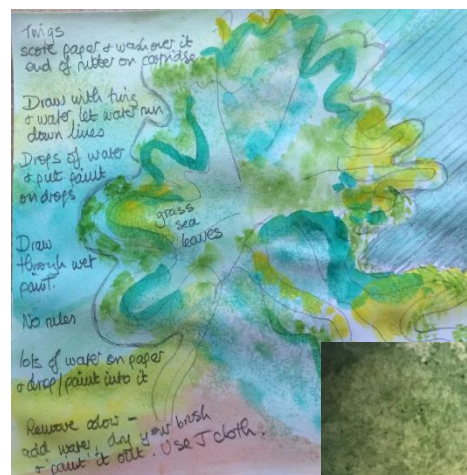 Twigs
score paper & wash over it
end of rubber on cartridge
Draw with twig
& water, let water run
down lines
Drops of water
& put paint
on drops
grass
sea
leaves
Draw
through wet
paint.
No rules
lots of water on paper
& drop/paint into it
Remove colour -
add water, dry your brush
& paint it out. Use J cloth.